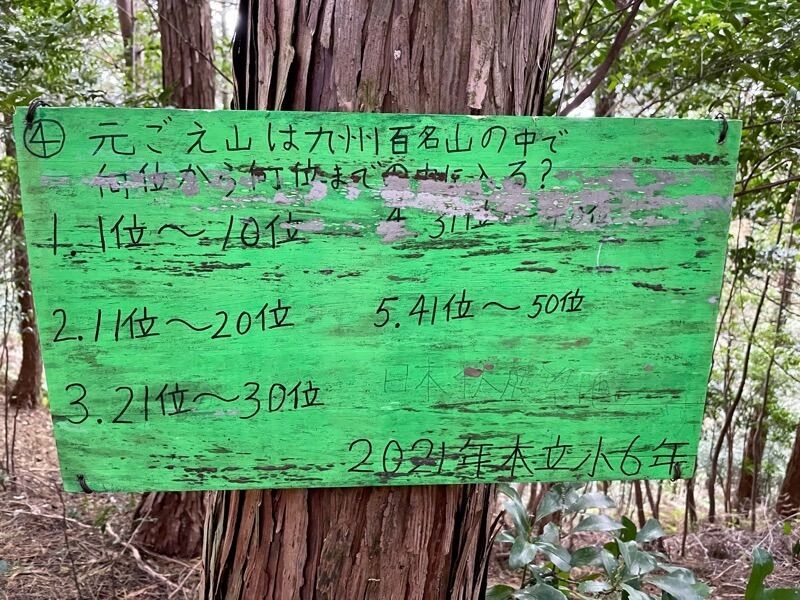 ④ 元ごえ山は九州百名山の中で
何位から何位までの中に入る?
1.1位~10位
4.31位~40位
2.11位~20位
5.41位~50位
3.21位~30位
日本
2021年本立小6年